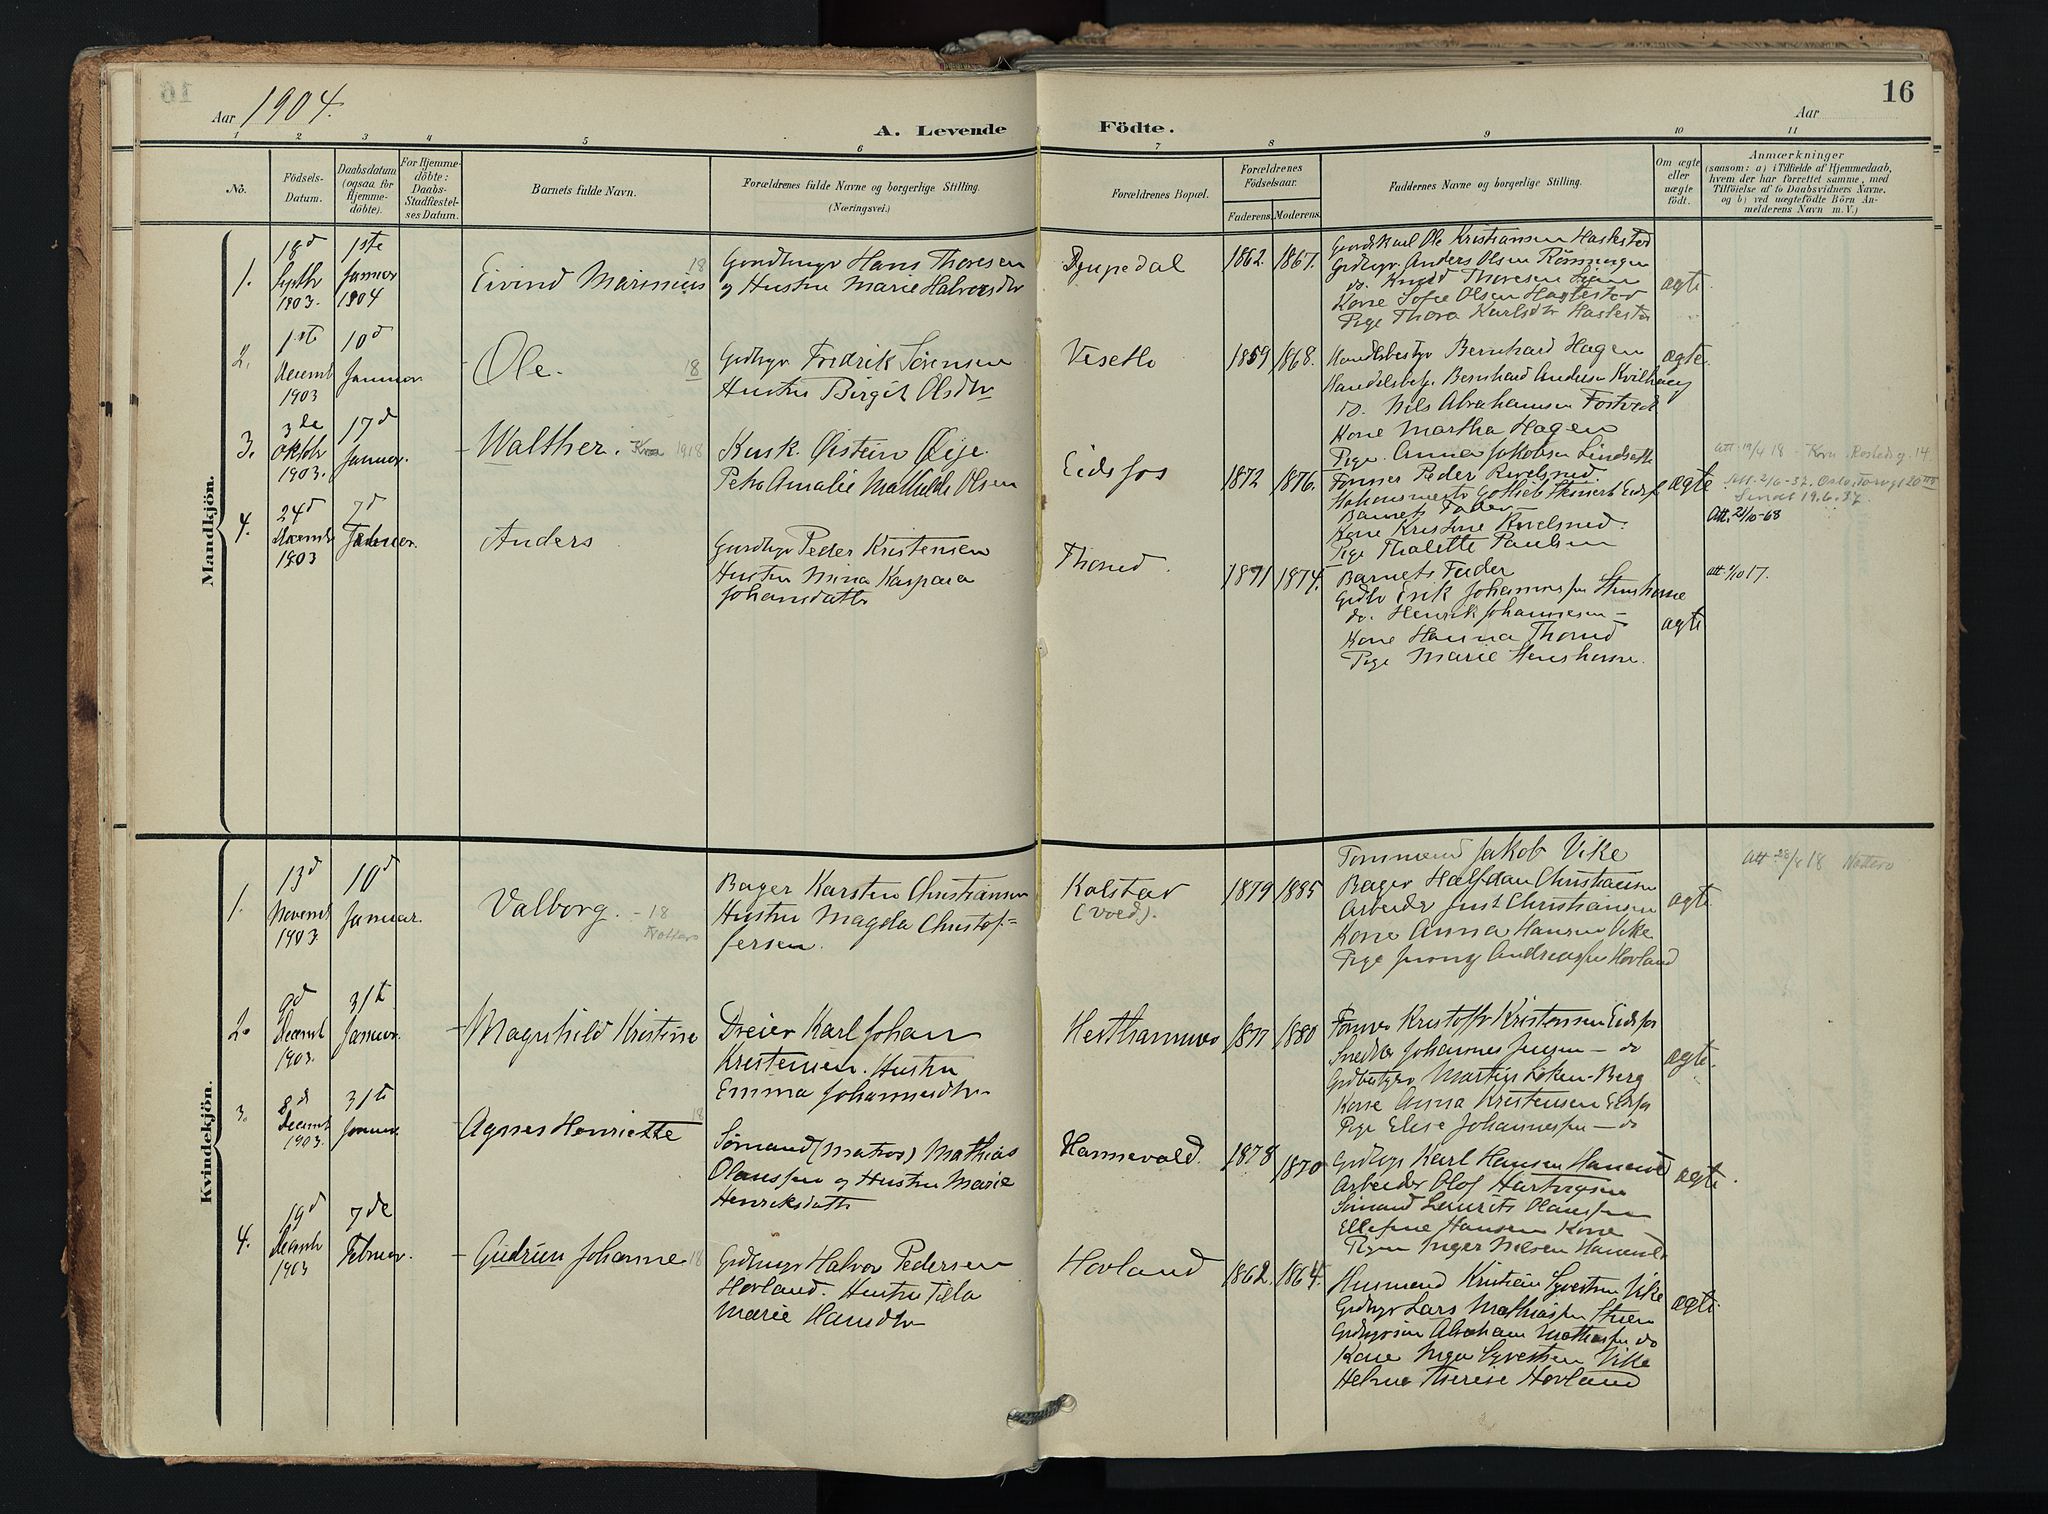 16
Aar 1904.
Aar
A. Levende Födte.
1 2 3 4 5 6 7 8 9 10 11
No.
Födsels-
Datum.
Daabsdatum
(ogsaa for
Hjemme-
döbte).
For Hjemme-
döbte:
Daabs-
Stadfæstel-
ses Datum.
Barnets fulde Navn.
Forældrenes fulde Navne og borgerlige Stilling.
(Næringsvei.)
Forældrenes Bopæl.
Forældrenes
Födselsaar.
Faderens. Moderens.
Faddernes Navne og borgerlige Stilling.
Om ægte
eller
uægte
födt.
Anmærkninger
(saasom: a) i Tilfælde af Hjemmedaab,
hvem der har forrettet samme, med
Tilföielse af to Daabsvidners Navne,
og b) ved uægtefödte Börn An-
melderens Navn m. V.)
Mandkjön.
1.
18d
Septbr
1903.
1ste
Januar
1904
Eivind Marinius 18
Gaardbruger Hans Thoresen
og Hustru Marie Halvorsdtr
Djupedal
1862. 1867.
Gaardskarl Ole Kristiansen Haskestad
Grdbrgr. Anders Olsen Rönningen
do. Knud Thoresen
Kone Sofie Olsen Haskestad
Pige Thora Karlsdtr Haskestad
ægte
2.
1ste
Decemb
1903
10d
Januar.
Ole. 18
Grdbrgr Fredrik Sörensen
Hustru Birgit Olsdtr
Vesetlo
1859 1868.
Handelsbestyr Bernhard Hagen
Handelsbetj. Bernhard Andersen
do. Nils Abrahamsen Fostvedt
Kone Martha Hagen
Pige Anna Jakobsen
ægte
3.
3de
Oktobr
1903.
17d
Januar.
Walther. Kra 1918
Kusk. Østein Øije.
Petra Amalie Mathilde Olsen
Eidsfos
1872 1876.
Former Peder
Gotlieb Steinert Eidsf
Barnets Fader
Kone Kristine
Pige Thalette Paulsen
ægte
Att 19/4 18 - Kra. Rosteds g. 14
Att. 2/6-37. Oslo,
Sendt 19.6.37.
Att. 21/10-68
4.
24d
Decemb
1903
7d
Februar.
Anders
Gaardbrgr Peder Kristensen
Hustru Mina Kaspara
Johansdatter
Thorud.
1871 1874.
Barnets Fader
Grdbr Erik Johannesen
do. Henrik Johannesen -
Kone Hanna Thorud
Pige Marie
ægte
att 1/10 17.
Kvindekjön.
1.
13d
Novemb
1903.
10d
Januar.
Valborg. - 18
Nøtterø
Bager Karsten Christiansen
Hustru Magda Christof-
fersen.
Kolstad
(Voed).
1879 1885
Tømmermd Jakob Vike
Bager Halfdan Christiansen
Arbeider Just Christiansen
Kone Anna Hansen Vike
Pige Jenny Andreassen Hovland
ægte
Att 28/8 18 Nøtterø
2.
9d
Decemb
1903.
31te
Januar.
Magnhild Kristine
Dreier Karl Johan
Kristensen. Hustru
Emma Johannesdtr.
1877 1880
Former Kristoffer Kristensen Eidsfos
Snedker Johannes Jensen - do
Grdbestyrer Martin Løken - Berg
Kone Anna Kristensen Eidsfos
Pige Elise Johannessen - do
ægte.
3.
8d
Decemb
1903.
31te
Januar
Agnes Henriette 18
Sømand (Matros) Mathias
Olaussen og Hustru Marie
Henriksdatter
Hannevold.
1878 1870
Grdbrgr Karl Hansen Hannevold
Arbeider Olof
Sømand Laurits Olaussen
Ellefine Hansen Kone -
Pigen Inger Nilsen Hannevold
ægte.
4.
19d
Decemb
1903
7de
Februar.
Gudrun Johanne 18
Grdbrgr Halvor Pedersen
Hovland. Hustru Tilla
Marie Hansdtr
Hovland
1862. 1864.
Husmand Kristian Syvertsen Vike
Grdbrgr Lars Mathiassen
Grdbrgrsøn Abraham Mathiassen do
Kone Inga Syvertsen Vike
Helma Therese Hovland
ægte